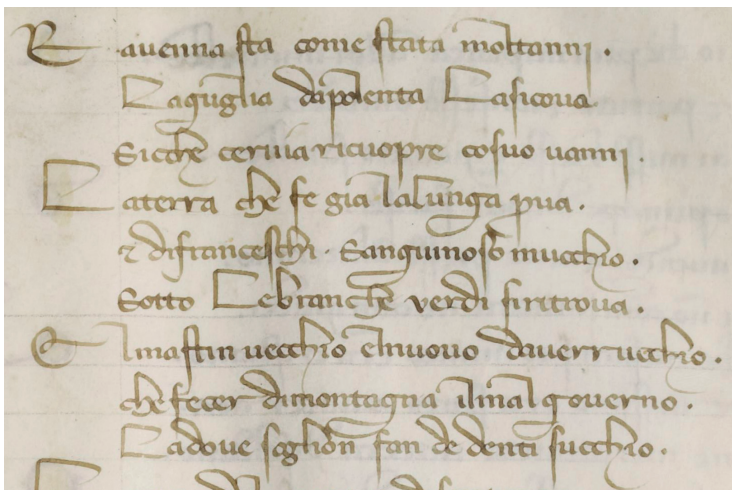 Rauenna sta come stata moltanni.
Laguglia dapolenta Lasicoua.
Sicche ceruia ricuopre cosuo uanni.
Laterra che fe gia lalunga pua.
& difranceschi Sanguinoso mucchio.
Sotto Lebranche verdi siritroua.
Elmastin uecchio elnuouo dauerruechio.
che fecer dimontagna ilmal gouerno.
Ladoue soglion fan de denti succhio.